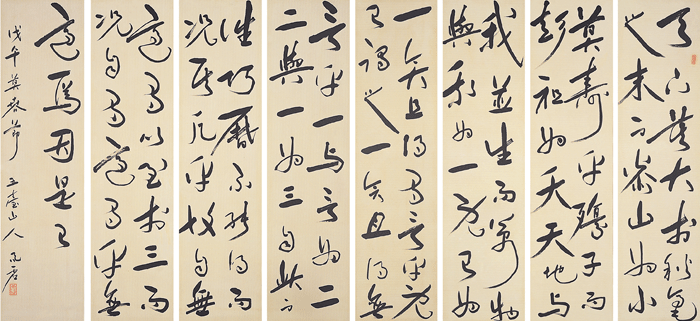 天下莫大於秋毫
之末而泰山為小
莫壽乎殤子而
彭祖為夭天地與
我並生而萬物
與我為一既已為
一矣且得有言乎既
已謂之一矣且得無
言乎一与言為二
二與一為三自此以
往巧曆不能得而
況其凡乎故自無
適有以至於三而
況自有適有乎無
適焉因是已
戊午莫春節 五臺山人